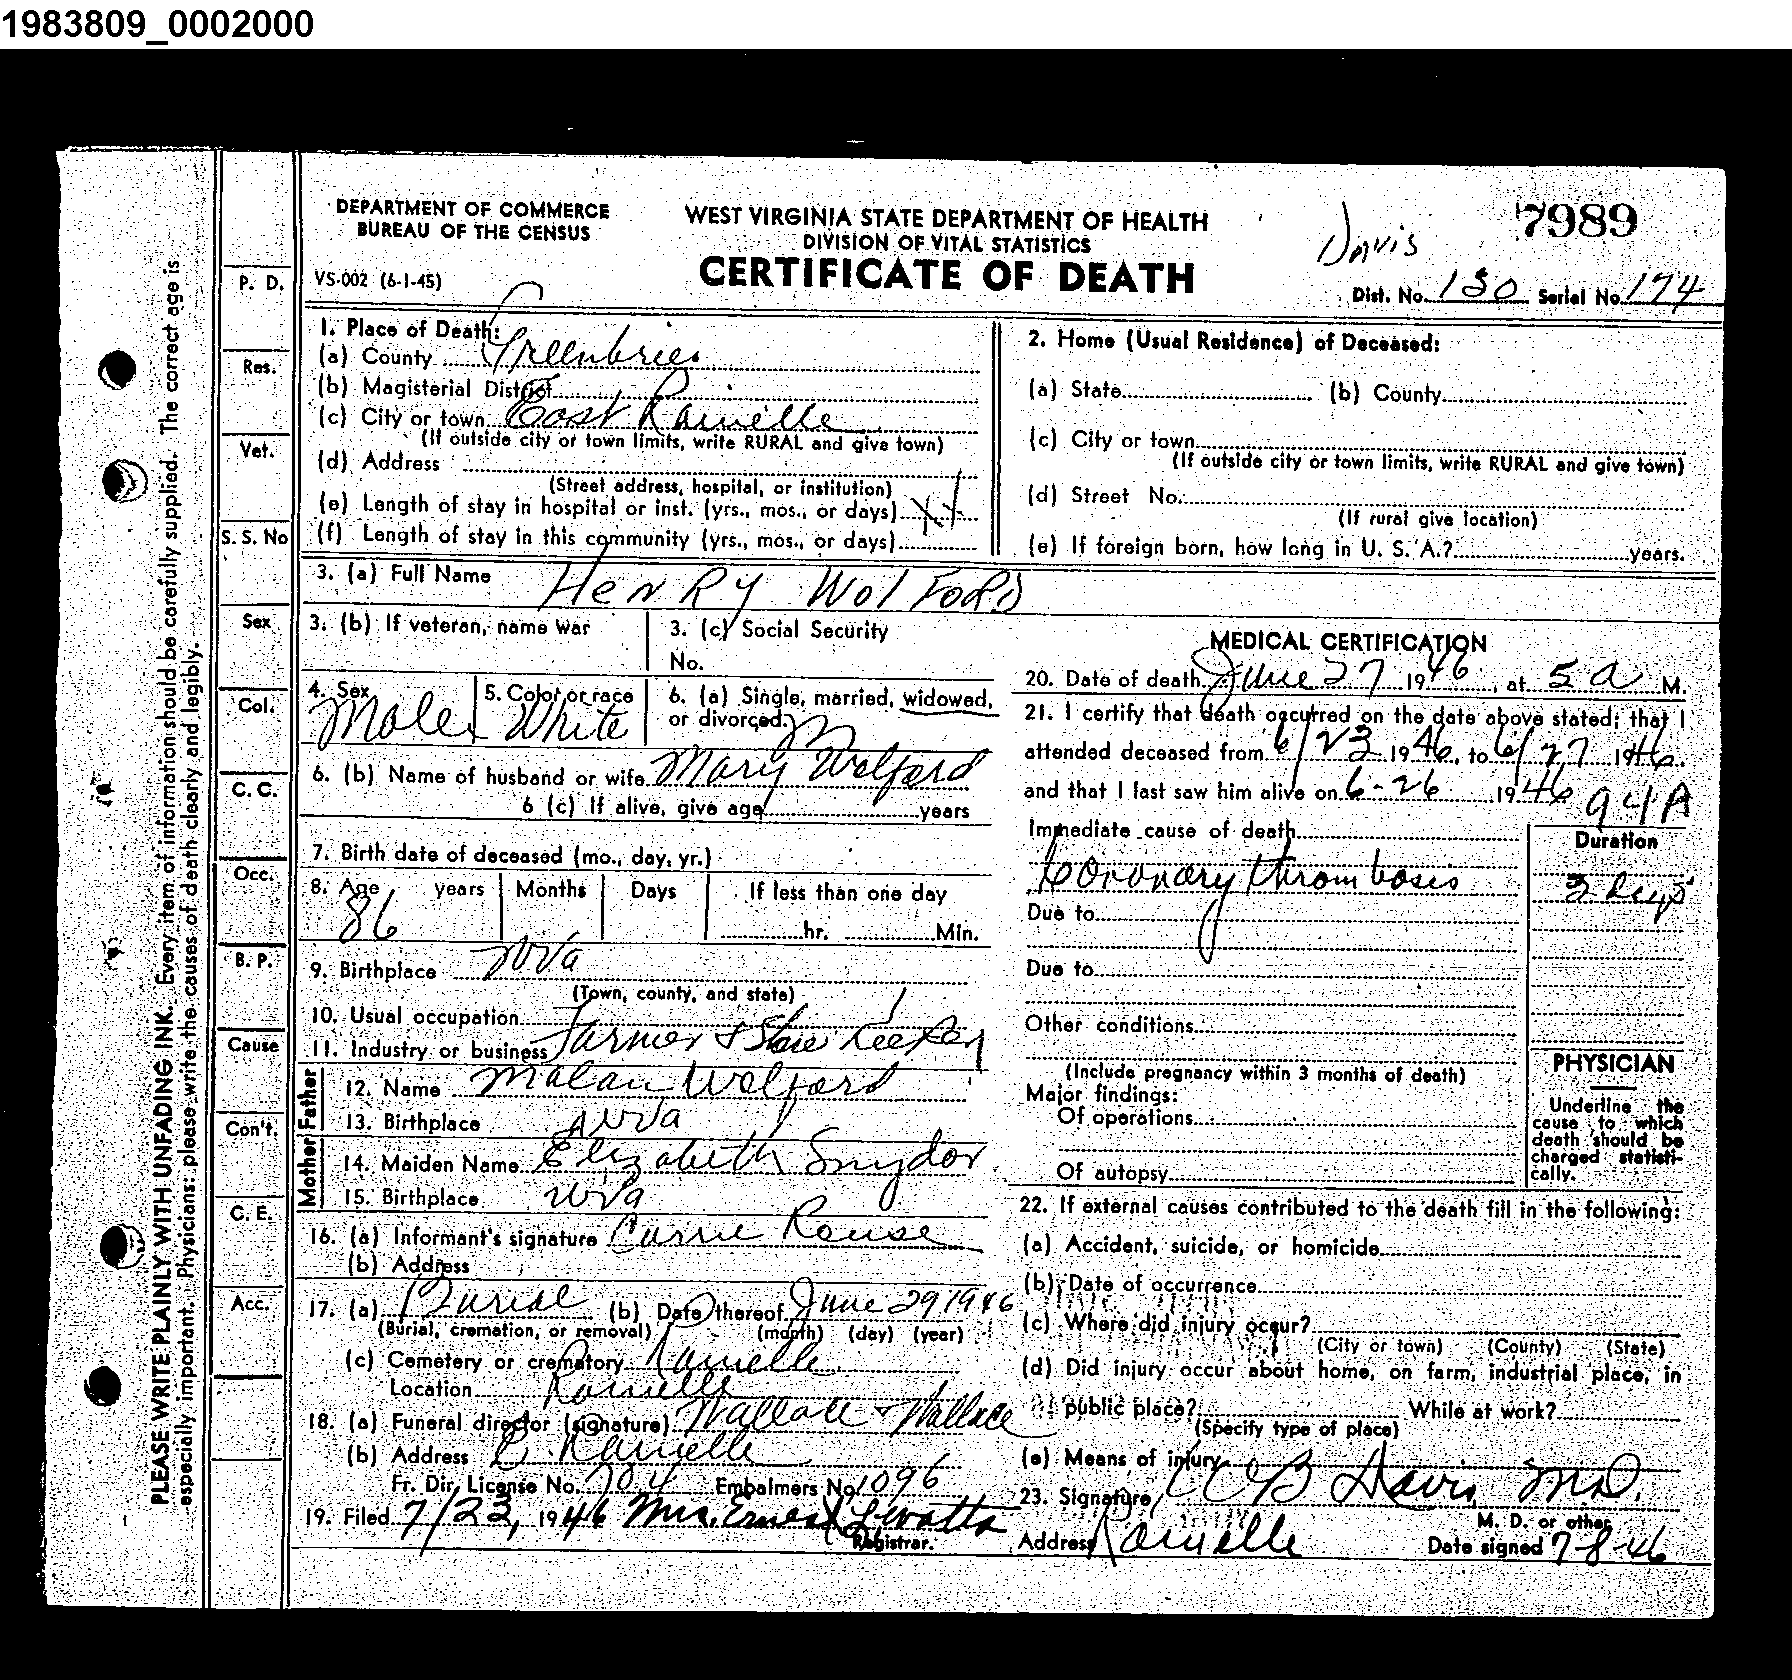 1983809_0002000
DEPARTMENT OF COMMERCE
BUREAU OF THE CENSUS
WEST VIRGINIA STATE DEPARTMENT OF HEALTH
DIVISION OF VITAL STATISTICS
CERTIFICATE OF DEATH
Davis
7989
VS-002 (6-1-45)
Dist. No. 130 Serial No. 174
1. Place of Death:
(a) County Greenbrier
(b) Magisterial District
(c) City or town East Rainelle
(If outside city or town limits, write RURAL and give town)
(d) Address
(Street address, hospital, or institution)
(e) Length of stay in hospital or inst. (yrs., mos., or days)
(f) Length of stay in this community (yrs., mos., or days)
2. Home (Usual Residence) of Deceased:
(a) State (b) County
(c) City or town
(If outside city or town limits, write RURAL and give town)
(d) Street No.
(If rural give location)
(e) If foreign born, how long in U. S. A.? years.
3. (a) Full Name Henry Wolford
3. (b) If veteran, name war
3. (c) Social Security
No.
4. Sex Male
5. Color or race White
6. (a) Single, married, widowed,
or divorced. M
6. (b) Name of husband or wife Mary Wolford
6 (c) If alive, give age years
7. Birth date of deceased (mo., day, yr.)
8. Age years Months Days If less than one day
86 hr. Min.
9. Birthplace WVa
(Town, county, and state)
10. Usual occupation
11. Industry or business Farmer & Store Keeper
Father
12. Name Wolford
13. Birthplace WVa
Mother
14. Maiden Name Elizabeth Snydor
15. Birthplace WVa
16. (a) Informant's signature Carrie Rouse
(b) Address
17. (a) Burial (b) Date thereof June 29 1946
(Burial, cremation, or removal) (month) (day) (year)
(c) Cemetery or crematory Rainelle
Location Rainelle
18. (a) Funeral director (signature) Wallace & Wallace
(b) Address E. Rainelle
Fr. Dir. License No. 704 Embalmers No. 1096
19. Filed 7/23, 1946 Mrs. Ernest
Registrar.
MEDICAL CERTIFICATION
20. Date of death June 27 1946, at 5 a M.
21. I certify that death occurred on the date above stated; that I
attended deceased from 6/23 1946, to 6/27 1946.
and that I last saw him alive on 6-26 1946
94A
Immediate cause of death
Duration
Coronary thrombosis 3 days
Due to
Due to
Other conditions
(Include pregnancy within 3 months of death)
Major findings:
Of operations
Of autopsy
PHYSICIAN
Underline the
cause to which
death should be
charged statisti-
cally.
22. If external causes contributed to the death fill in the following:
(a) Accident, suicide, or homicide
(b) Date of occurrence
(c) Where did injury occur?
(City or town) (County) (State)
(d) Did injury occur about home, on farm, industrial place, in
public place? While at work?
(Specify type of place)
(e) Means of injury
23. Signature C B Davis MD.
M. D. or other
Address Rainelle Date signed 7-8-46
P. D.
Res.
Vet.
S. S. No
Sex
Col.
C. C.
Occ.
B. P.
Cause
Con't.
C. E.
Acc.
PLEASE WRITE PLAINLY WITH UNFADING INK. Every item of information should be carefully supplied. The correct age is
especially important. Physicians: please write the causes of death clearly and legibly.